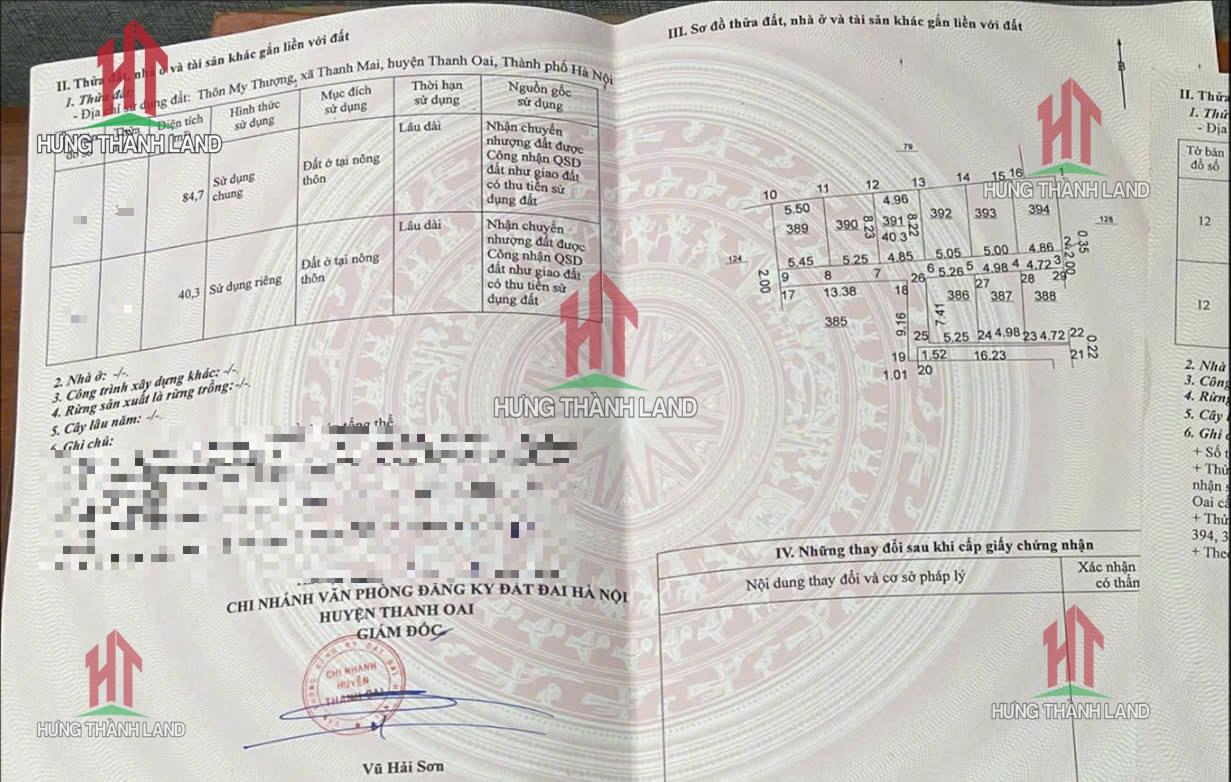 II. Thửa đất, nhà ở và tài sản khác gắn liền với đất
1. Thửa đất:
- Địa chỉ sử dụng đất: Thôn My Thượng, xã Thanh Mai, huyện Thanh Oai, Thành phố Hà Nội
đồ số
Thửa
Diện tích
Hình thức sử dụng
Mục đích sử dụng
Thời hạn sử dụng
Nguồn gốc sử dụng
84,7
Sử dụng chung
Đất ở tại nông thôn
Lâu dài
Nhận chuyển
nhượng đất được
Công nhận QSD
đất như giao đất
có thu tiền sử
dụng đất
40,3
Sử dụng riêng
Đất ở tại nông thôn
Lâu dài
Nhận chuyển
nhượng đất được
Công nhận QSD
đất như giao đất
có thu tiền sử
dụng đất
2. Nhà ở: -/-.
3. Công trình xây dựng khác: -/-.
4. Rừng sản xuất là rừng trồng: -/-.
5. Cây lâu năm: -/-.
6. Ghi chú:
CHI NHÁNH VĂN PHÒNG ĐĂNG KÝ ĐẤT ĐAI HÀ NỘI
HUYỆN THANH OAI
GIÁM ĐỐC
CHI NHÁNH
HUYỆN
THANH OAI
Vũ Hải Sơn
III. Sơ đồ thửa đất, nhà ở và tài sản khác gắn liền với đất
B
79
10 11 12 13 14 15 16 1
5.50 4.96
389 390 8.23 391 8.22 392 393 394
40.3
128
124
5.45 5.25 4.85 5.05 5.00 4.86 2 0.35
9 8 7 6 5.26 5 4.98 4 4.72 3 2.00
2.00 17 13.38 18 26 27 28 29
385 386 387 388
9.16 7.41
25 5.25 24 4.98 23 4.72 22 0.22
19 1.52 16.23 21
1.01 20
IV. Những thay đổi sau khi cấp giấy chứng nhận
Nội dung thay đổi và cơ sở pháp lý
Xác nhận
có thẩn
II. Thửa
1. Thử
- Địa
Tờ bản
đồ số
12
12
2. Nhà
3. Côn
4. Rừng
5. Cây
6. Ghi c
+ Số t
+ Thử
nhận s
Oai cấ
+ Thử
394, 3
+ Theo
HƯNG THÀNH LAND
HƯNG THÀNH LAND
HƯNG THÀNH LAND
HƯNG THÀNH LAND
HƯNG THÀNH LAND